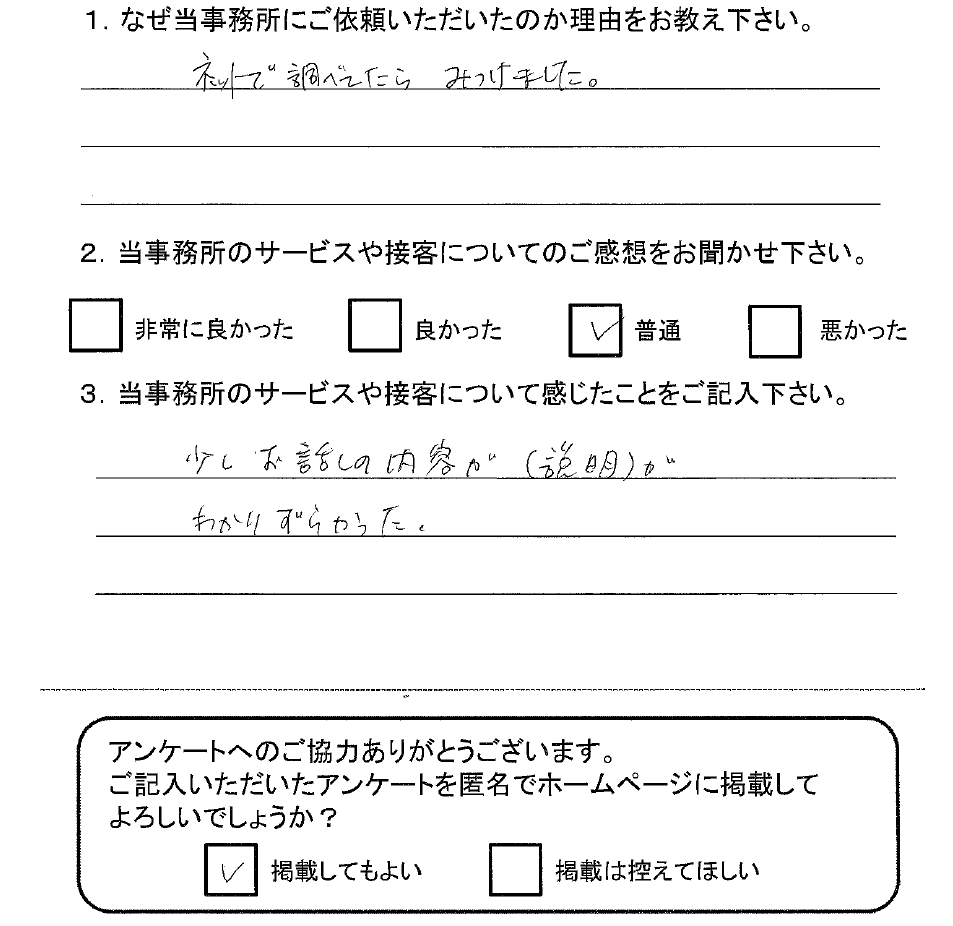 1. なぜ当事務所にご依頼いただいたのか理由をお教え下さい。
ネットで調べてたら みつけました。
2. 当事務所のサービスや接客についてのご感想をお聞かせ下さい。
非常に良かった 良かった 普通 悪かった
3. 当事務所のサービスや接客について感じたことをご記入下さい。
少し お話しの内容が (説明)が
わかりずらかった。
アンケートへのご協力ありがとうございます。
ご記入いただいたアンケートを匿名でホームページに掲載して
よろしいでしょうか？
掲載してもよい 掲載は控えてほしい